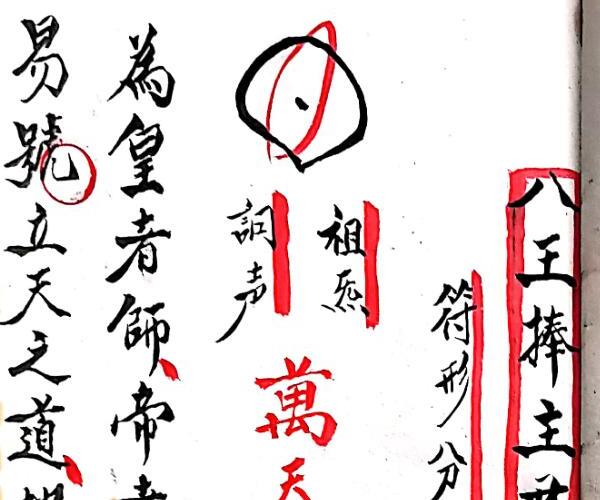 八王捧主
符形八分
祖炁
詞声
萬天
為皇者師帝者
易號立天之道